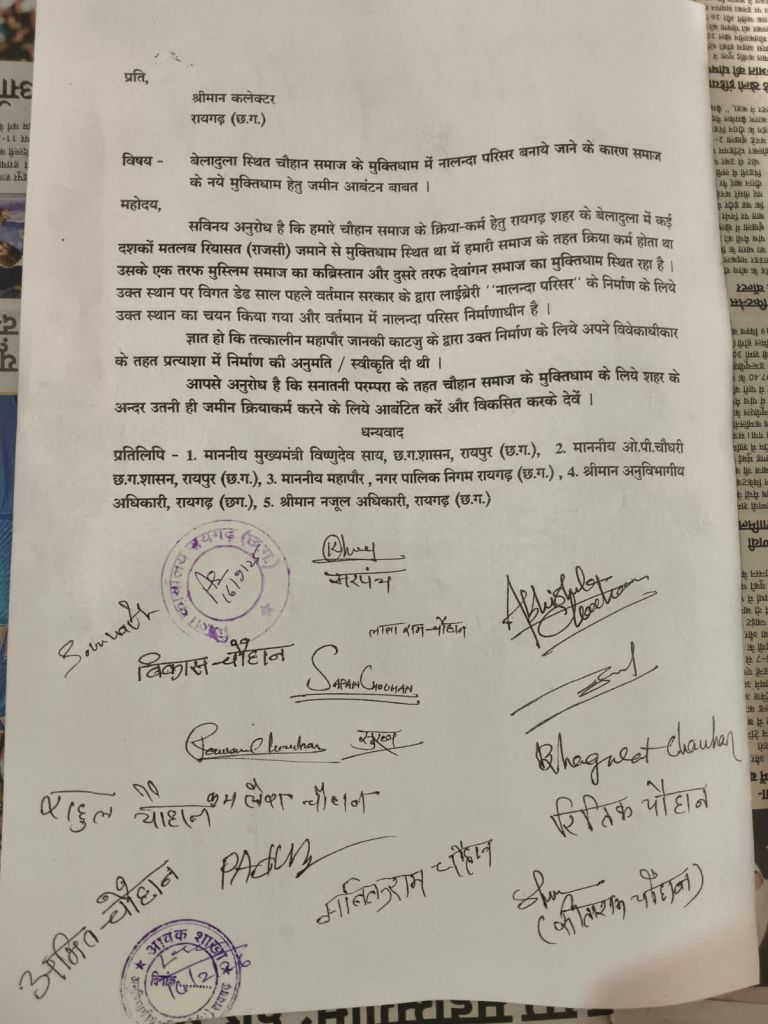 प्रति,
श्रीमान कलेक्टर
रायगढ़ (छ.ग.)
विषय - बेलादुला स्थित चौहान समाज के मुक्तिधाम में नालन्दा परिसर बनाये जाने के कारण समाज
के नये मुक्तिधाम हेतु जमीन आबंटन बाबत ।
महोदय,
सविनय अनुरोध है कि हमारे चौहान समाज के क्रिया-कर्म हेतु रायगढ़ शहर के बेलादुला में कई
दशकों मतलब रियासत (राजसी) जमाने से मुक्तिधाम स्थित था में हमारी समाज के तहत क्रिया कर्म होता था
उसके एक तरफ मुस्लिम समाज का कब्रिस्तान और दुसरे तरफ देवांगन समाज का मुक्तिधाम स्थित रहा है ।
उक्त स्थान पर विगत डेढ साल पहले वर्तमान सरकार के द्वारा लाईब्रेरी ''नालन्दा परिसर'' के निर्माण के लिये
उक्त स्थान का चयन किया गया और वर्तमान में नालन्दा परिसर निर्माणाधीन है ।
ज्ञात हो कि तत्कालीन महापौर जानकी काटजु के द्वारा उक्त निर्माण के लिये अपने विवेकाधीकार
के तहत प्रत्याशा में निर्माण की अनुमति / स्वीकृति दी थी ।
आपसे अनुरोध है कि सनातनी परम्परा के तहत चौहान समाज के मुक्तिधाम के लिये शहर के
अन्दर उतनी ही जमीन क्रियाकर्म करने के लिये आबंटित करें और विकसित करके देवें ।
धन्यवाद
प्रतिलिपि - 1. माननीय मुख्यमंत्री विष्णुदेव साय, छ.ग.शासन, रायपुर (छ.ग.), 2. माननीय ओ.पी.चौधरी
छ.ग.शासन, रायपुर (छ.ग.), 3. माननीय महापौर , नगर पालिक निगम रायगढ़ (छ.ग.) , 4. श्रीमान अनुविभागीय
अधिकारी, रायगढ़ (छग.), 5. श्रीमान नजूल अधिकारी, रायगढ़ (छ.ग.)
कार्यालय रायगढ़ (छ.ग.)
सरपंच
Abhishek Chauhan
लाला राम-चौहान
विकास-चौहान
SAPAN CHOUHAN
Bhagwat Chauhan
राहुल चौहान
कमलेश चौहान
रितिक चौहान
अमित-चौहान
चौहान
चौहान)
आवक शाखा
दिनांक